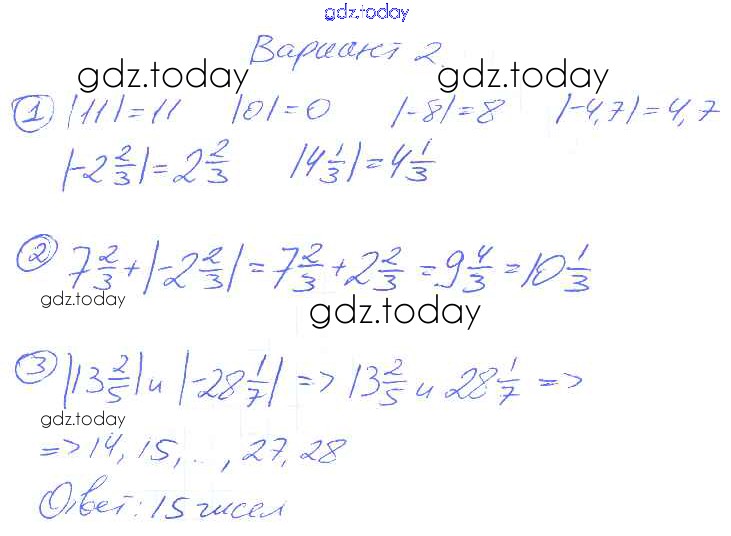 gdz.today
Вариант 2
gdz.today gdz.today
① |11|=11 |0|=0 |-8|=8 |-4,7|=4,7
|-2 2/3|=2 2/3 |4 1/3|=4 1/3
② 7 2/3+|-2 2/3|=7 2/3+2 2/3=9 4/3=10 1/3
gdz.today gdz.today
③ |13 2/5| и |-28 1/7| => 13 2/5 и 28 1/7 =>
gdz.today
=>14, 15, .., 27, 28
Ответ: 15 чисел